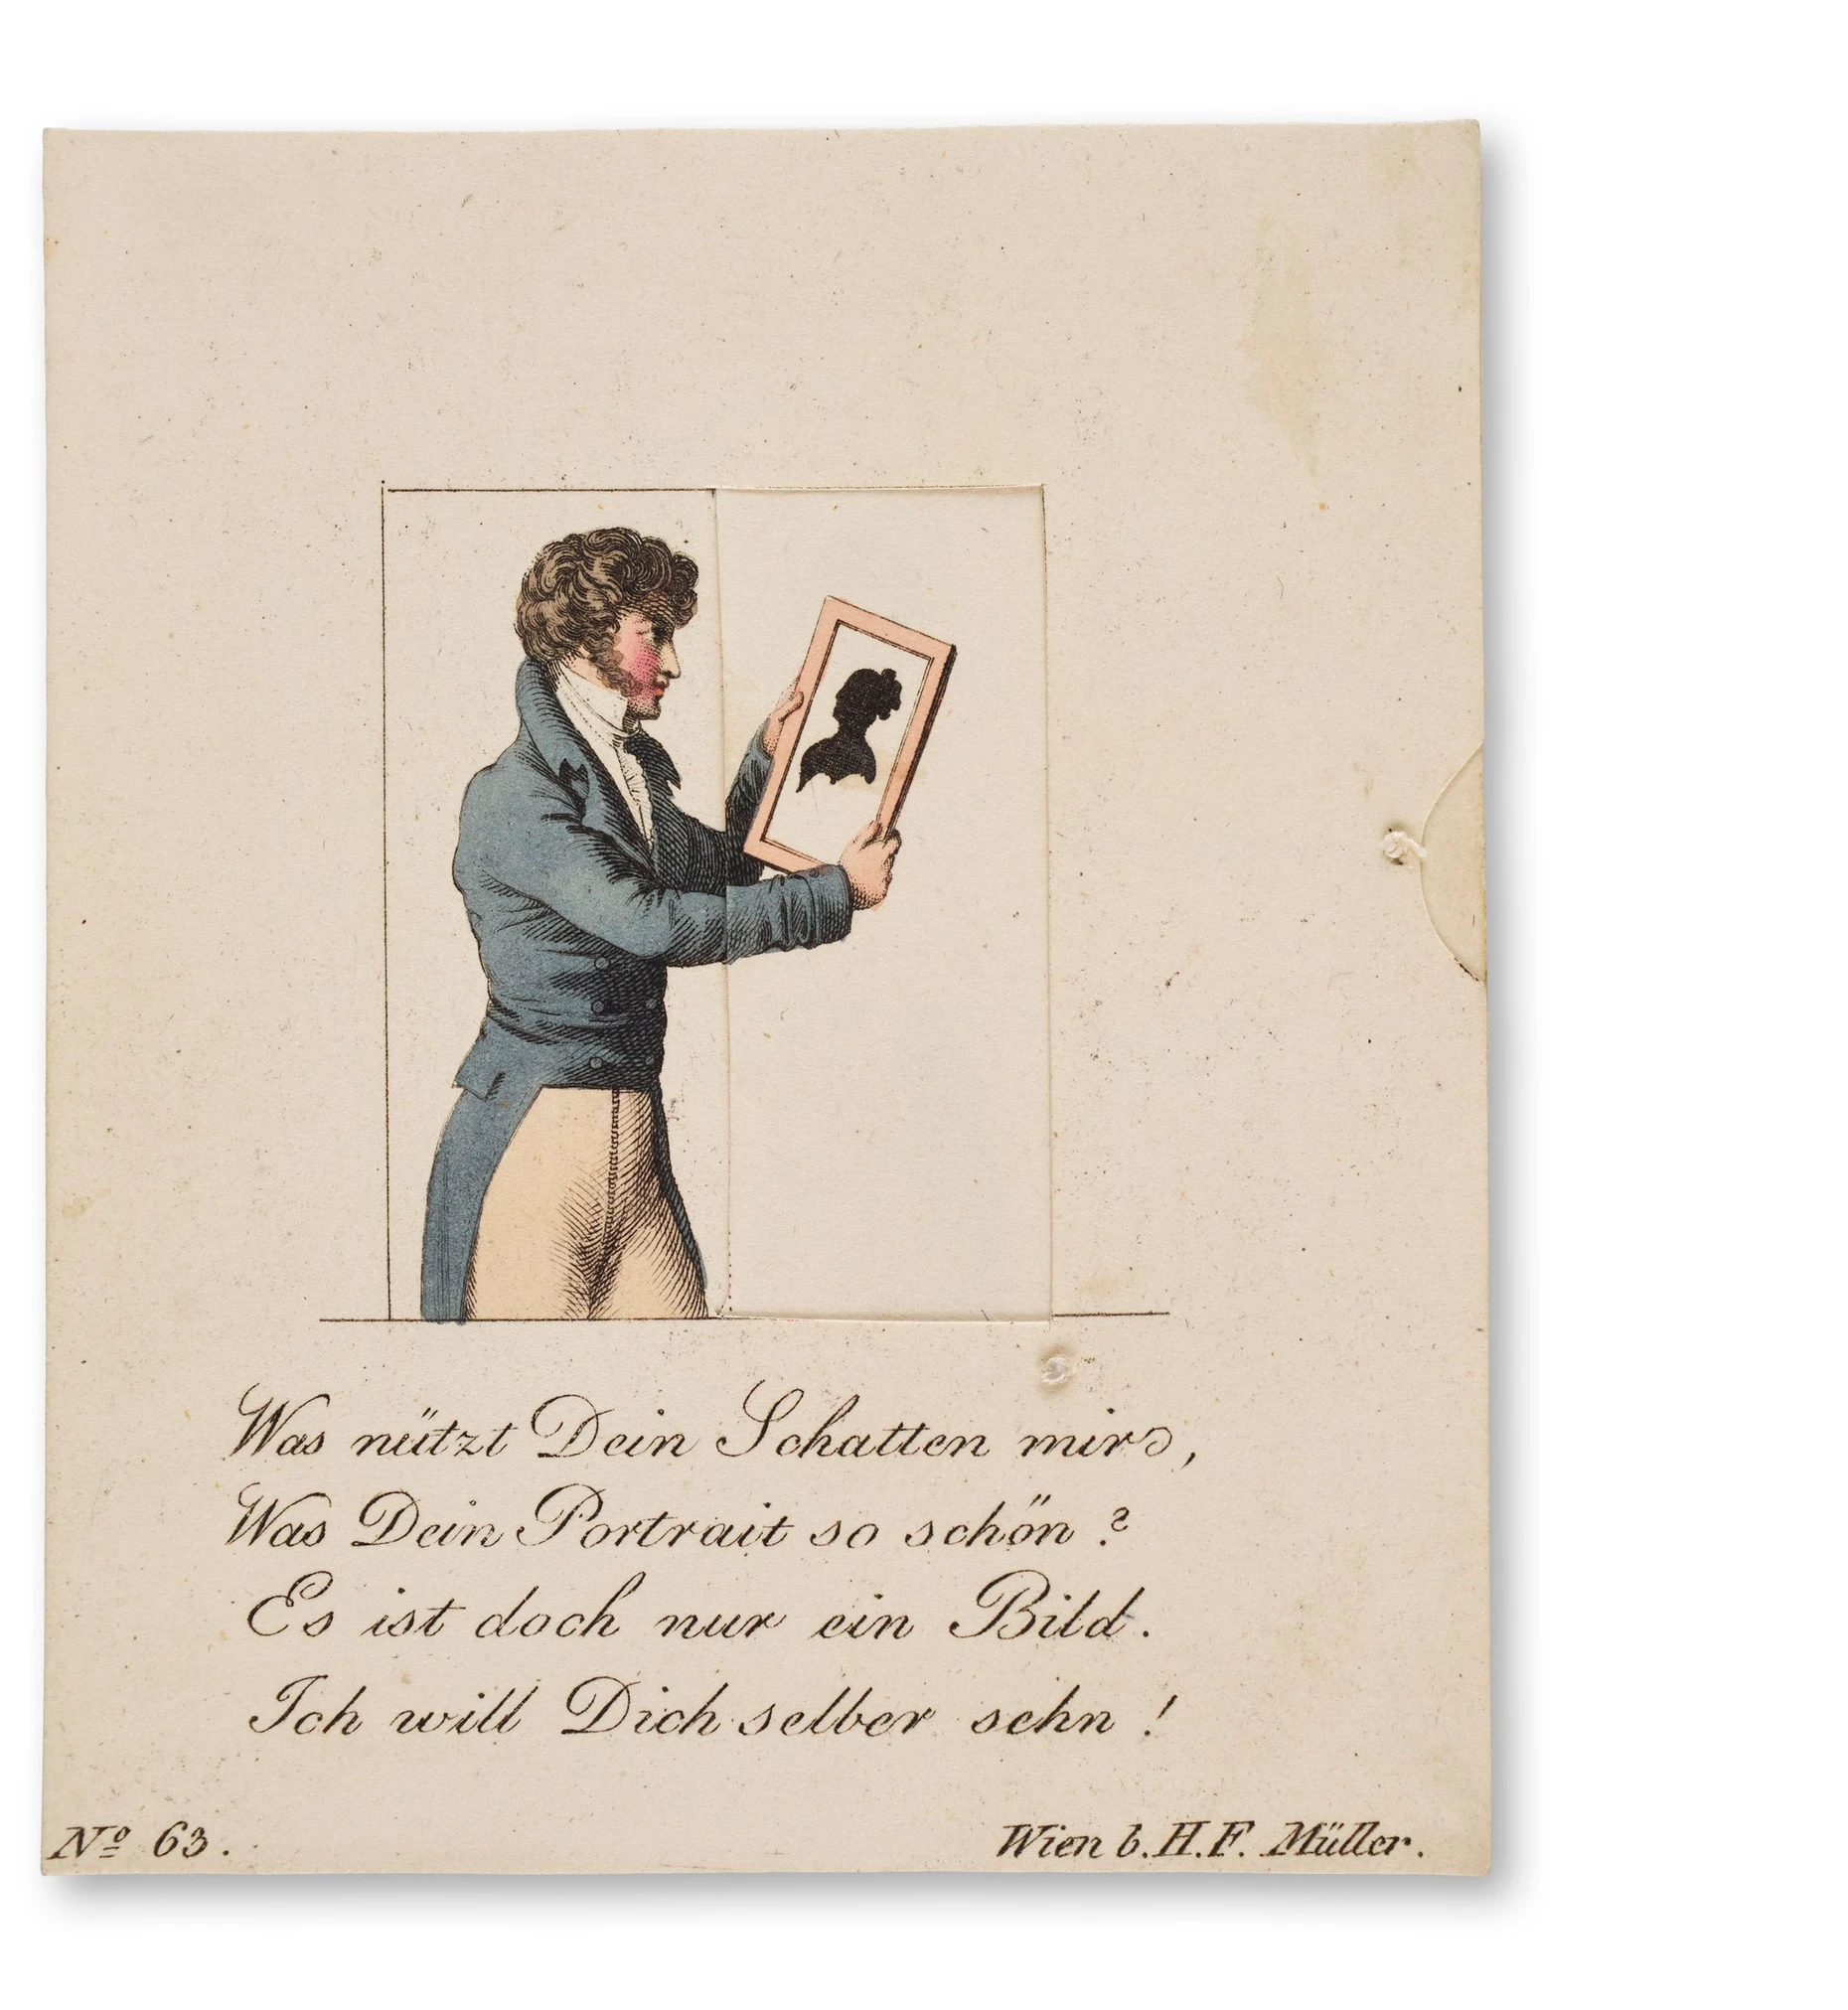 Was nützt Dein Schatten mir,
Was Dein Portrait so schön?
Es ist doch nur ein Bild.
Ich will Dich selber sehn!
No 63.
Wien b. H. F. Müller.